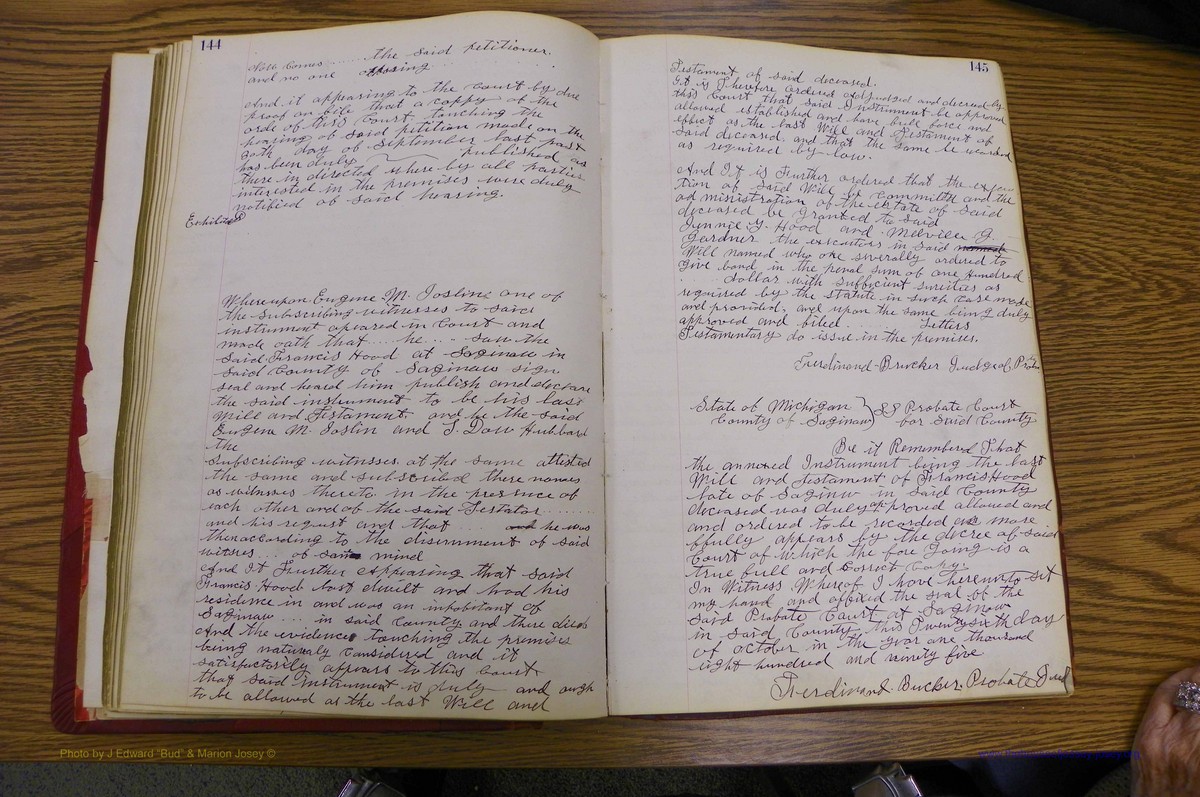 144
Now Comes ...... the said petitioner.
and no one opposing
And it appearing to the court by due
proof on file that a coppy of the
orde of this Court touching the
hearing of said petition made on the
day of September last past
has been duly published as
there in directed where by all parties
interested in the premises were duly
notified of said hearing.
Exhibited
Whereupon Eugene M. Joslin one of
the subscribing witnesses to said
instrument apeared in Court and
made oath that ... he ... saw the
said Francis Hood at Saginaw in
said County of Saginaw sign
seal and heard him publish and declare
the said instrument to be his last
Will and Testament and he the said
Eugene M. Joslin and T. Dow Hubbard
the
subscribing witnesses at the same attested
the same and subscribed there names
as witnesses thereto in the presence of
each other and of the said Testator ......
and his request and that ... he was
then according to the discrnment of said
witness ... of mind
And It Further Appearing that said
Francis Hood last dwilt and had his
residence in and was an inhabitant of
Saginaw .... in said County and there died
And the evidence touching the premises
being naturaly considered and it
satisfactorily appears to this Court
that said instrument is duly and ough
to be allowed as the last Will and
145
Testament of said deceased.
It is Therefore ordered adjudged and decreed by
this Court that said Instrument be approved
allowed established and have full force and
effect as the last Will and Testament of
said deceased and that the same be recorded
as required by law.
And It is Further ordered that the execu
tion of said Will be committed and the
administration of the Estate of said
deceased be granted to said
Jennie Y. Hood and Melville G
Gardner the executors in said
Will named who are severally ordered to
give bond in the penal sum of one hundred
dollar with sufficient sureties as
required by the statute in such case made
and provided, and upon the same being duly
approved and filed ........ Letters
Testamentary do issue in the premises.
Ferdinand Brucker Judge of Probate
State of Michigan } SS Probate Court
County of Saginaw } for said County
Be it Remembered That
the annexed Instrument being the last
Will and Testament of Francis Hood
late of Saginw in said County
deceased was duly aproved allowed and
and ordered to be recorded as more
ffully appears by the decree of said
Court of which the fore going is a
true full and Correct Copy.
In Witness Whereof I have hereunto set
my hand and affixed the seal of the
said Probate Court at Saginaw
in said County this Twentysixth day
of October in the year one thousand
eight hundred and ninity five
Ferdinand Bucker. Probate Jud
Photo by J Edward "Bud" & Marion Josey ©